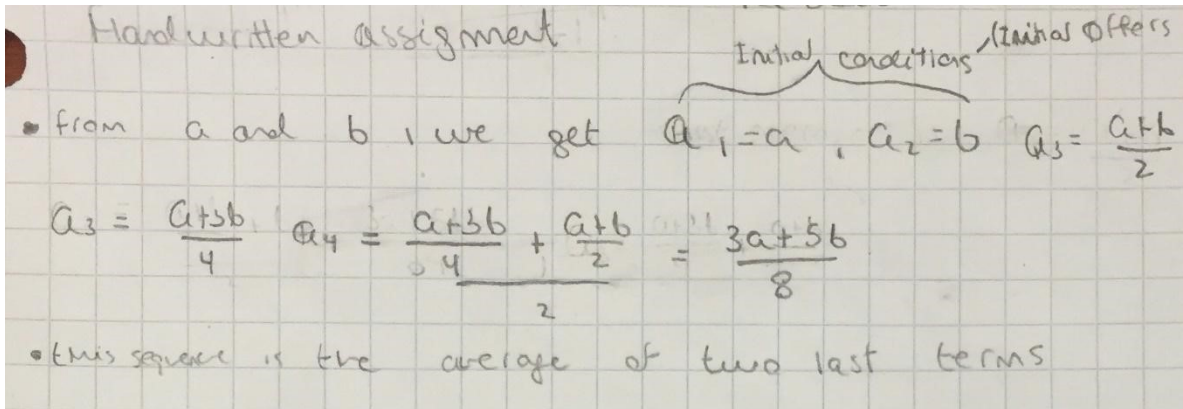 Handwritten assigment
Initial conditions / Initial Offers
• from a and b, we get a₁ = a, a₂ = b a₃ = (a+b)/2
a₃ = (a+3b)/4 a₄ = ((a+3b)/4 + (a+b)/2)/2 = (3a+5b)/8
• this sequence is the average of two last terms